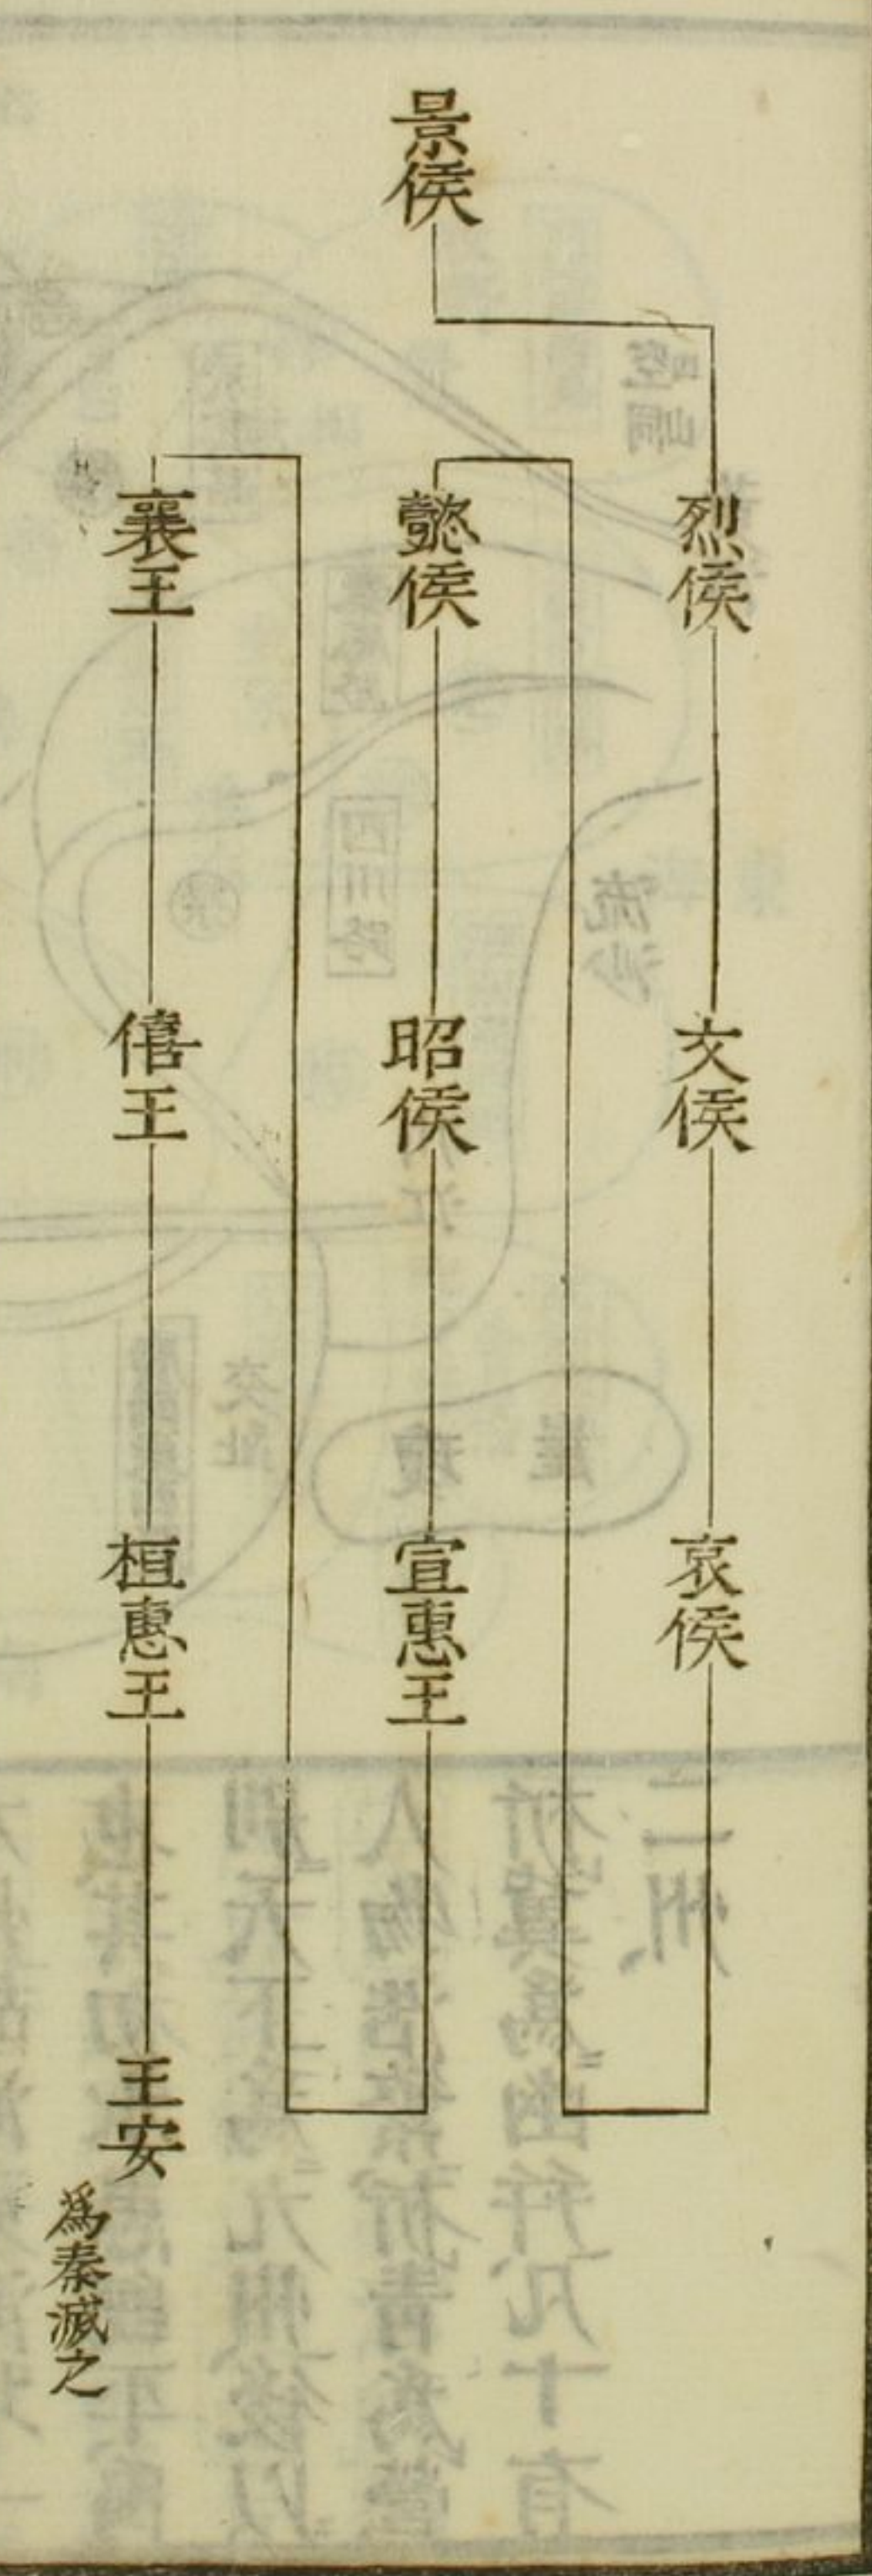 景侯
烈侯
文侯
哀侯
懿侯
昭侯
宣惠王
襄王
僖王
桓惠王
王安
爲秦滅之